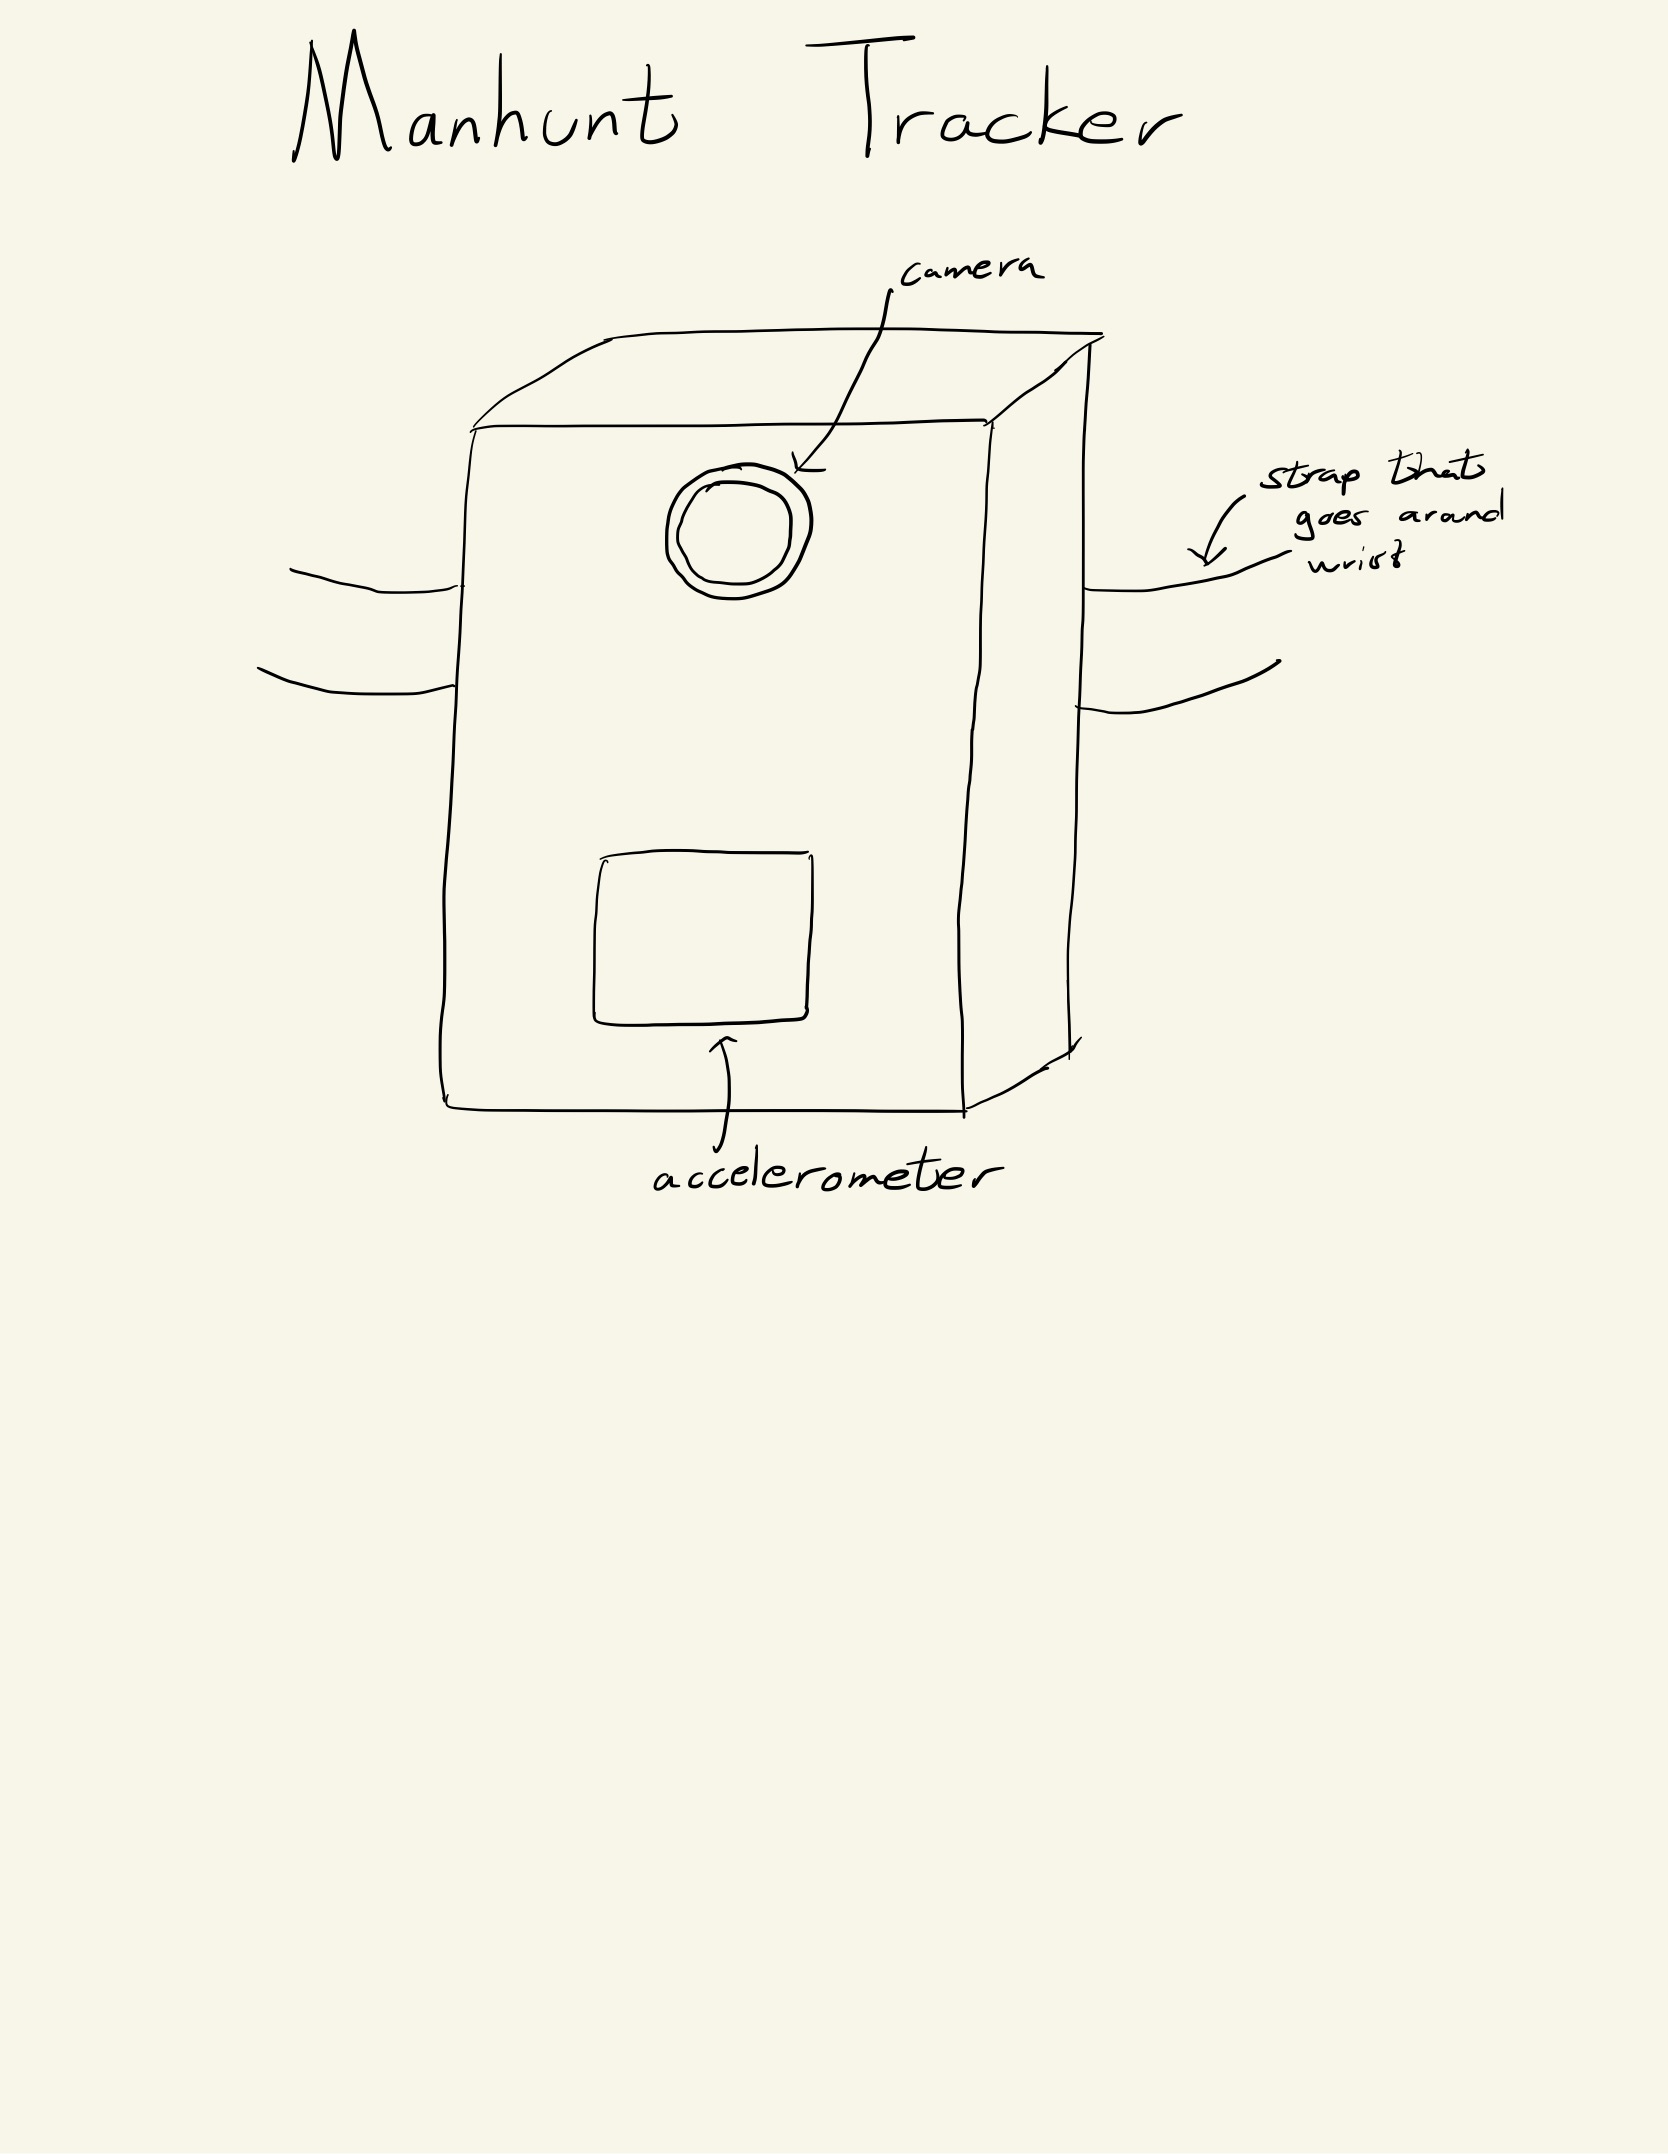 Manhunt Tracker
camera
strap that
goes around
wrist
accelerometer